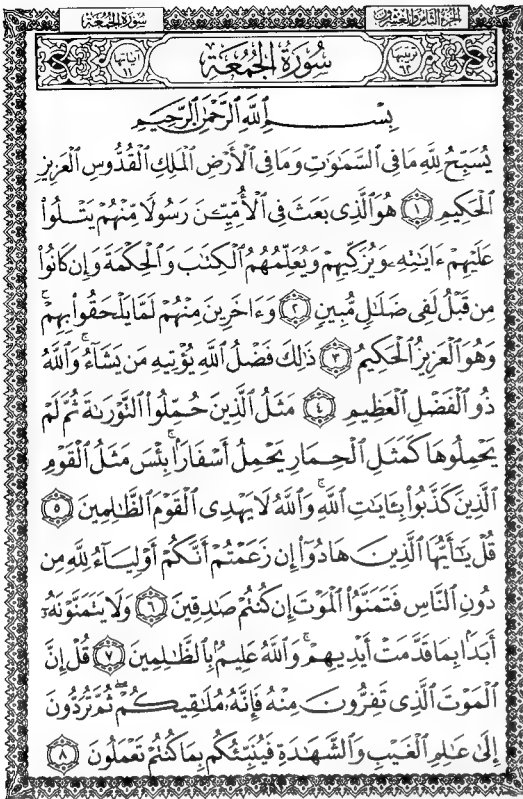 الجزء الثامن والعشرون
سورة الجمعة
ترتيبها ٦٢
سُورَةُ الجُمُعَةِ
آياتها ١١
بِسْمِ ٱللَّهِ ٱلرَّحْمَٰنِ ٱلرَّحِيمِ
يُسَبِّحُ لِلَّهِ مَا فِي ٱلسَّمَٰوَٰتِ وَمَا فِي ٱلْأَرْضِ ٱلْمَلِكِ ٱلْقُدُّوسِ ٱلْعَزِيزِ
ٱلْحَكِيمِ ١ هُوَ ٱلَّذِي بَعَثَ فِي ٱلْأُمِّيِّـۧنَ رَسُولًا مِّنْهُمْ يَتْلُوا۟
عَلَيْهِمْ ءَايَٰتِهِۦ وَيُزَكِّيهِمْ وَيُعَلِّمُهُمُ ٱلْكِتَٰبَ وَٱلْحِكْمَةَ وَإِن كَانُوا۟
مِن قَبْلُ لَفِي ضَلَٰلٍ مُّبِينٍ ٢ وَءَاخَرِينَ مِنْهُمْ لَمَّا يَلْحَقُوا۟ بِهِمْ ۚ
وَهُوَ ٱلْعَزِيزُ ٱلْحَكِيمُ ٣ ذَٰلِكَ فَضْلُ ٱللَّهِ يُؤْتِيهِ مَن يَشَآءُ ۚ وَٱللَّهُ
ذُو ٱلْفَضْلِ ٱلْعَظِيمِ ٤ مَثَلُ ٱلَّذِينَ حُمِّلُوا۟ ٱلتَّوْرَىٰةَ ثُمَّ لَمْ
يَحْمِلُوهَا كَمَثَلِ ٱلْحِمَارِ يَحْمِلُ أَسْفَارًۢا ۚ بِئْسَ مَثَلُ ٱلْقَوْمِ
ٱلَّذِينَ كَذَّبُوا۟ بِـَٔايَٰتِ ٱللَّهِ ۚ وَٱللَّهُ لَا يَهْدِي ٱلْقَوْمَ ٱلظَّٰلِمِينَ ٥
قُلْ يَٰٓأَيُّهَا ٱلَّذِينَ هَادُوٓا۟ إِن زَعَمْتُمْ أَنَّكُمْ أَوْلِيَآءُ لِلَّهِ مِن
دُونِ ٱلنَّاسِ فَتَمَنَّوُا۟ ٱلْمَوْتَ إِن كُنتُمْ صَٰدِقِينَ ٦ وَلَا يَتَمَنَّوْنَهُۥٓ
أَبَدًۢا بِمَا قَدَّمَتْ أَيْدِيهِمْ ۚ وَٱللَّهُ عَلِيمٌۢ بِٱلظَّٰلِمِينَ ٧ قُلْ إِنَّ
ٱلْمَوْتَ ٱلَّذِي تَفِرُّونَ مِنْهُ فَإِنَّهُۥ مُلَٰقِيكُمْ ۖ ثُمَّ تُرَدُّونَ
إِلَىٰ عَٰلِمِ ٱلْغَيْبِ وَٱلشَّهَٰدَةِ فَيُنَبِّئُكُم بِمَا كُنتُمْ تَعْمَلُونَ ٨